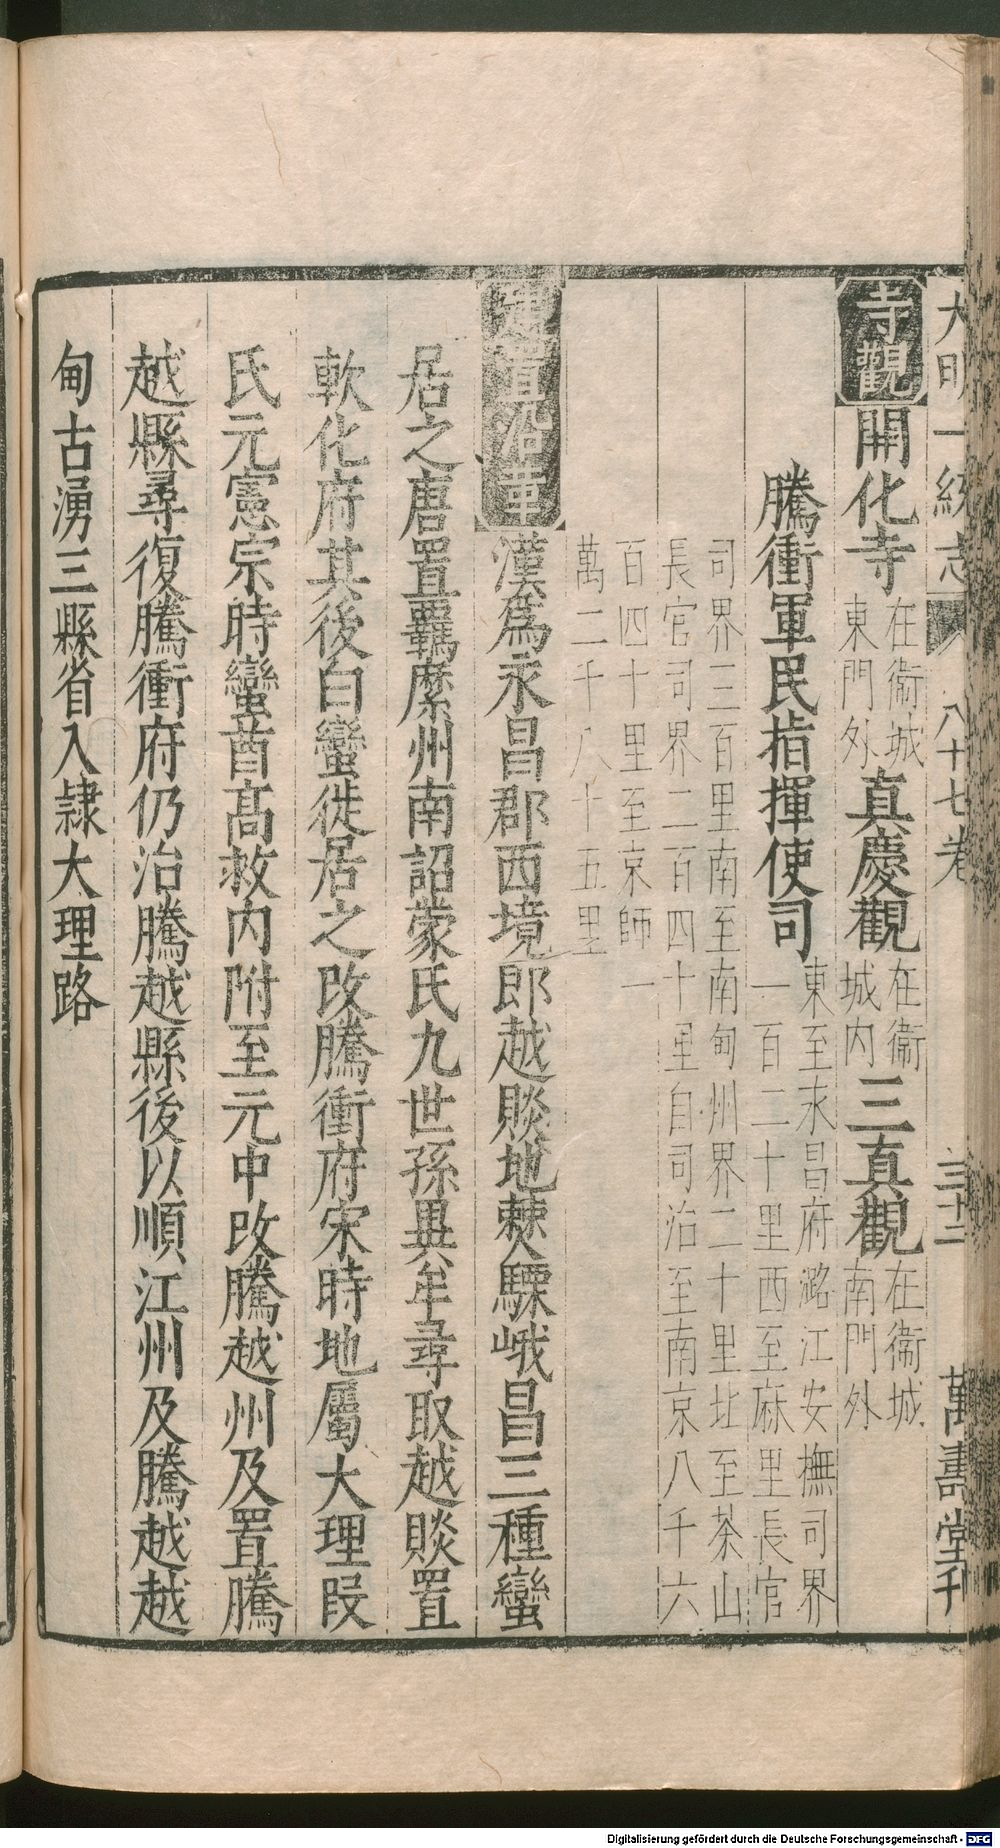 大明一統志 八十七卷 三十二 萬壽堂刊
寺觀 開化寺 在衞城東門外 真慶觀 在衞城内 三真觀 在衞城南門外
騰衝軍民指揮使司 東至永昌府潞江安撫司界
一百二十里西至麻里長官
司界三百里南至南甸州界二十里北至茶山
長官司界二百四十里自司治至南京八千六
百四十里至京師一
萬二千八十五里
建置沿革 漢爲永昌郡西境郎越賧地僰驃峨昌三種蠻
居之唐置羈縻州南詔蒙氏九世孫異牟尋取越賧置
軟化府其後白蠻徙居之改騰衝府宋時地屬大理段
氏元憲宗時蠻酋髙救内附至元中改騰越州及置騰
越縣尋復騰衝府仍治騰越縣後以順江州及騰越越
甸古湧三縣省入隷大理路
Digitalisierung gefördert durch die Deutsche Forschungsgemeinschaft - DFG